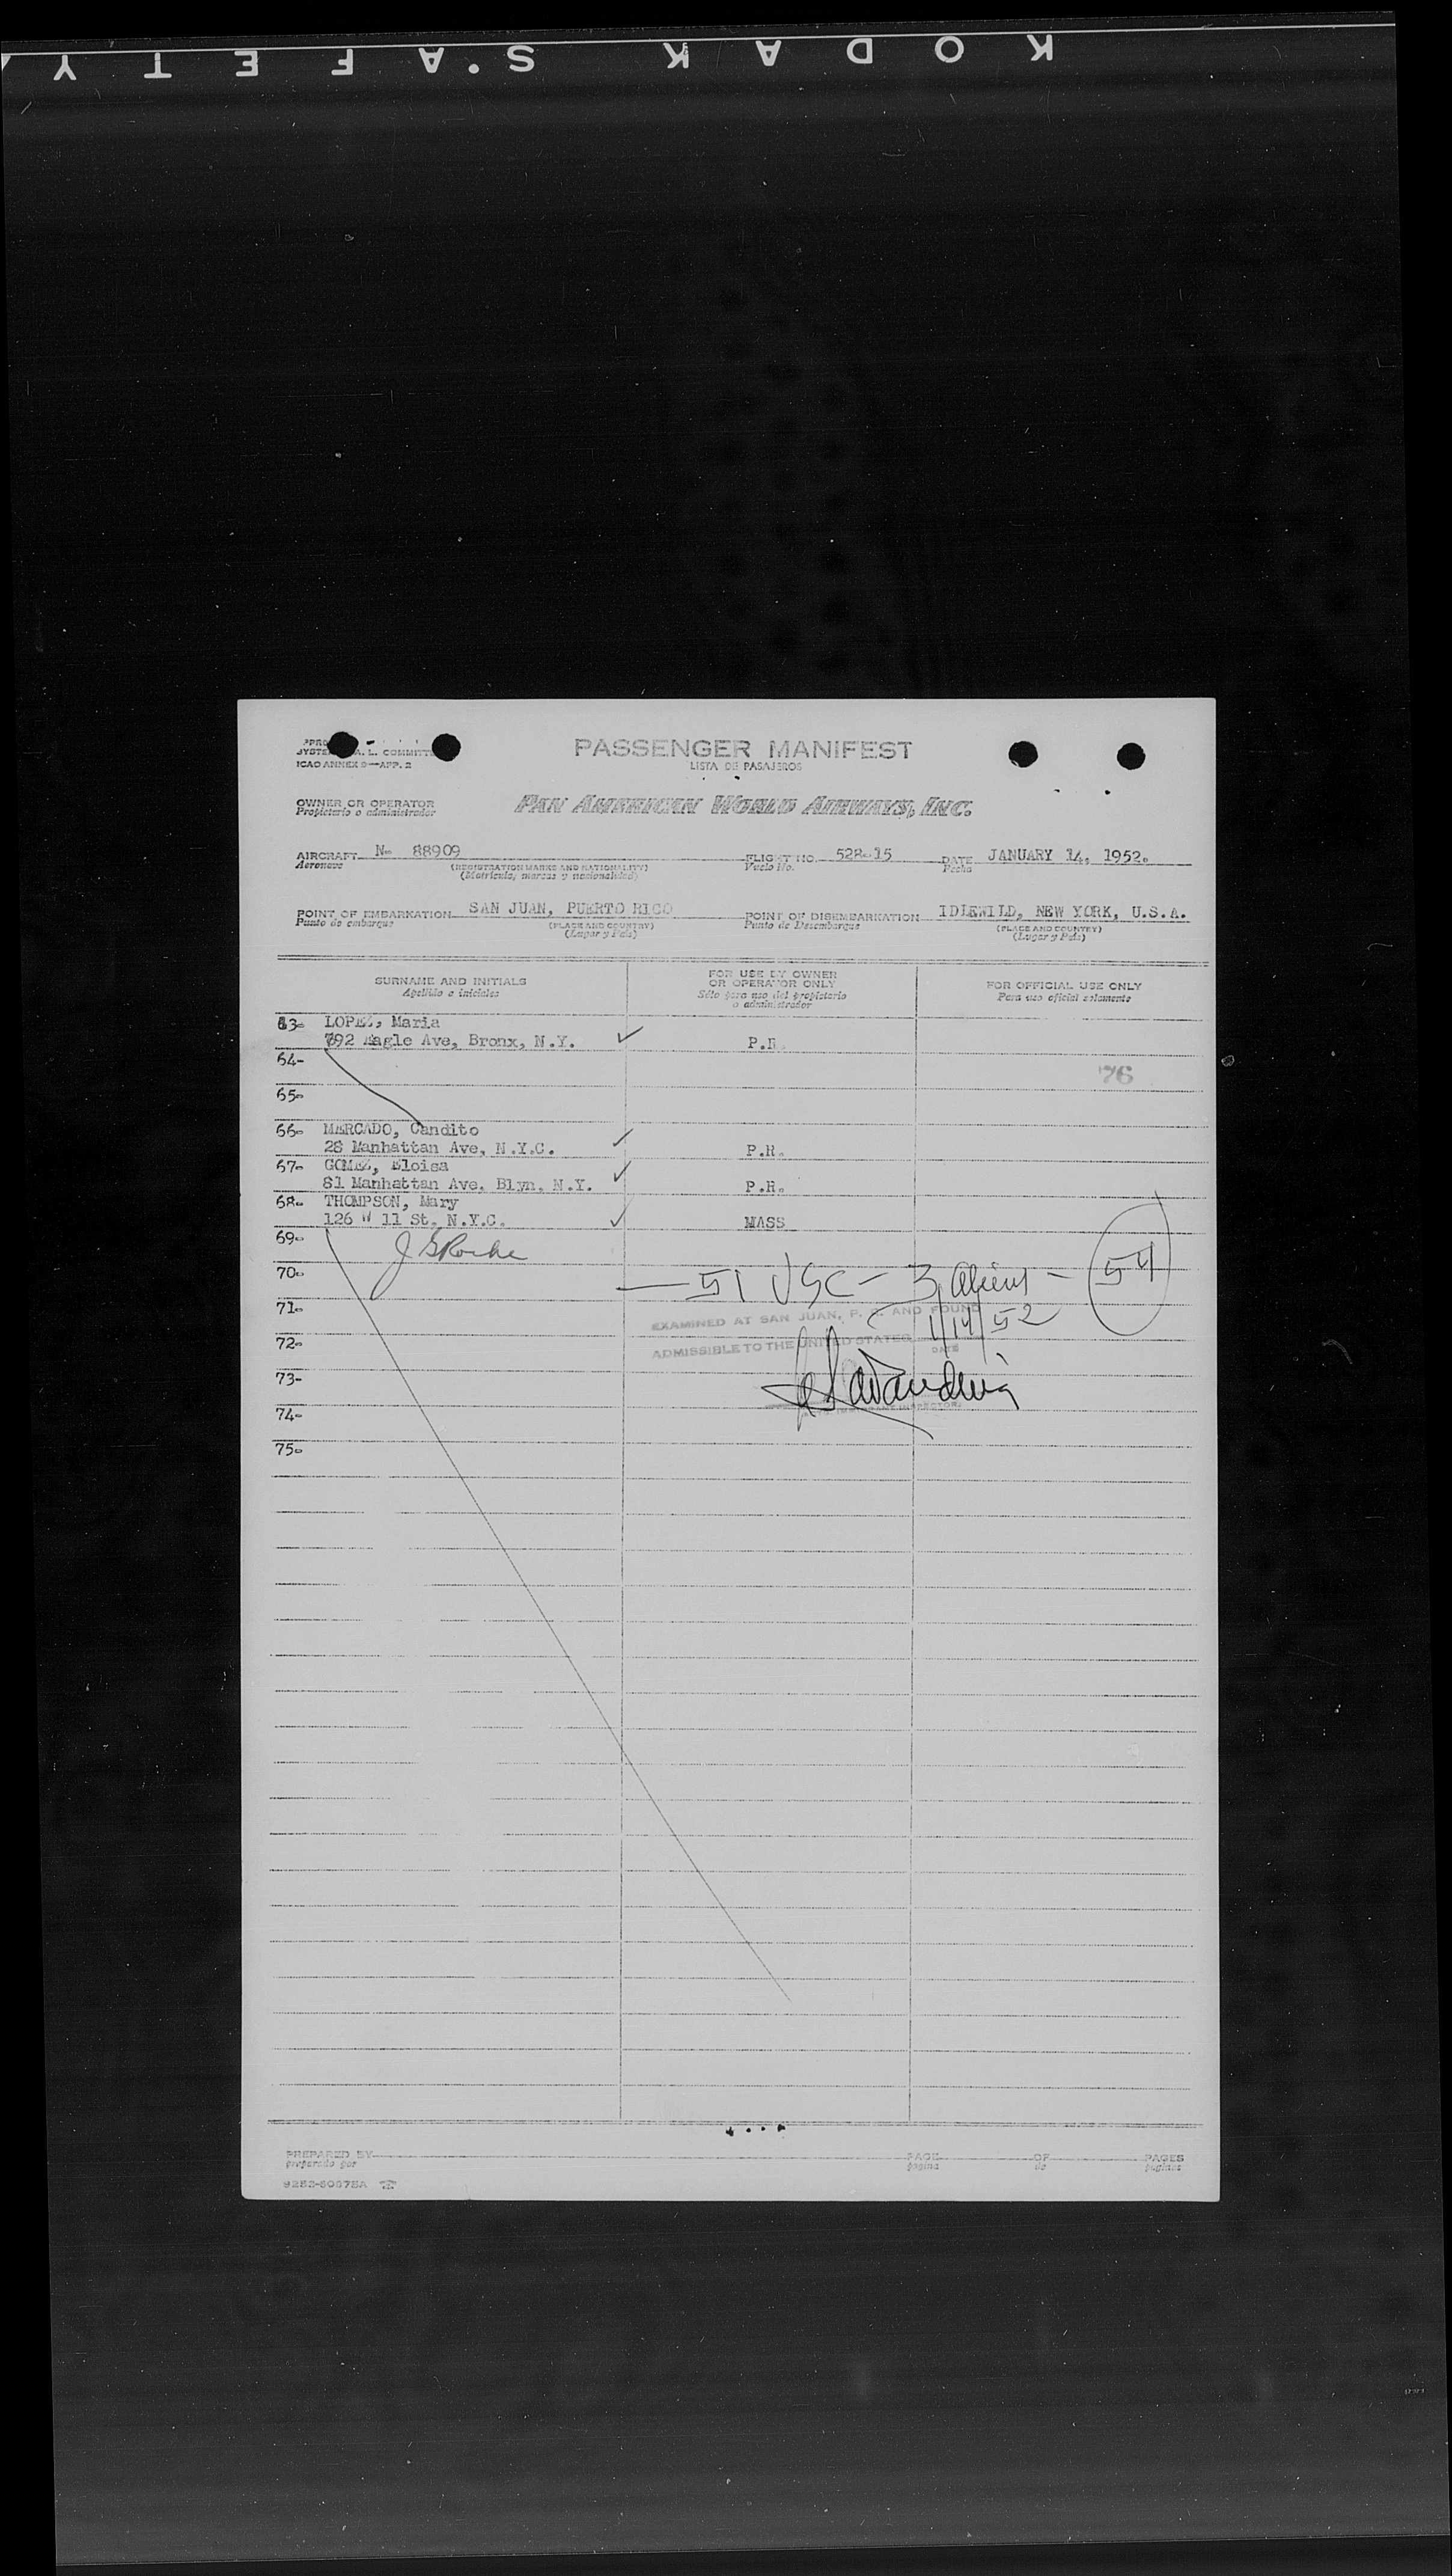 KODAK SAFETY
JYSTE A. L. COMMITT
ICAO ANNEX 9—APP. 2
PASSENGER MANIFEST
LISTA DE PASAJEROS
OWNER OR OPERATOR
Propietario o administrador
PAN AMERICAN WORLD AIRWAYS, INC.
AIRCRAFT N- 88909 FLIGHT NO. 528-15 DATE JANUARY 14, 1952.
Aeronave (REGISTRATION MARKS AND NATIONALITY) Vuelo No. Fecha
(Matricula, marcas y nacionalidad)
POINT OF EMBARKATION SAN JUAN, PUERTO RICO POINT OF DISEMBARKATION IDLEWILD, NEW YORK, U.S.A.
Punto de embarque (PLACE AND COUNTRY) Punto de Desembarque (PLACE AND COUNTRY)
(Lugar y Pais) (Lugar y Pais)
SURNAME AND INITIALS FOR USE BY OWNER OR OPERATOR ONLY FOR OFFICIAL USE ONLY
Apellido e iniciales Sólo para uso del propietario o administrador Para uso oficial solamente
63- LOPEZ, Maria
792 Eagle Ave, Bronx, N.Y. P.R.
64-
76
65-
66- MERCADO, Candito
28 Manhattan Ave, N.Y.C. P.R.
67- GOMEZ, Eloisa
81 Manhattan Ave. Blyn. N.Y. P.R.
68- THOMPSON, Mary
126 W 11 St. N.Y.C. MASS
69-
70- — 51 USC - 3 aliens - 54
71-
EXAMINED AT SAN JUAN, P. R. AND FOUND
1/14/52
72- ADMISSIBLE TO THE UNITED STATES
DATE
73-
74- IMMIGRANT INSPECTOR
75-
PREPARED BY PAGE OF PAGES
preparado por pagina de paginas